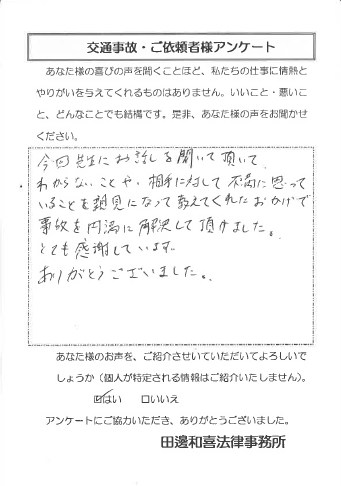 交通事故・ご依頼者様アンケート
あなた様の喜びの声を聞くことほど、私たちの仕事に情熱と
やりがいを与えてくれるものはありません。いいこと・悪いこ
と、どんなことでも結構です。是非、あなた様の声をお聞かせ
ください。
今回先生にお話しを聞いて頂いて
わからないことや、相手に対して不満に思って
いることを親身になって教えてくれたおかげで
事故を円満に解決して頂けました。
とても感謝しています。
ありがとうございました。
あなた様のお声を、ご紹介させていただいてよろしいで
しょうか（個人が特定される情報はご紹介いたしません）。
☑はい　□いいえ
アンケートにご協力いただき、ありがとうございました。
田邊和喜法律事務所